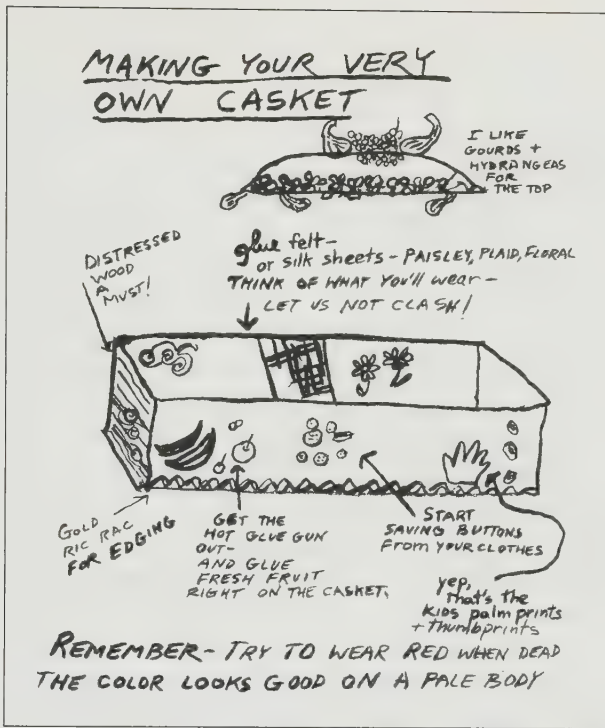 MAKING YOUR VERY
OWN CASKET
I LIKE
GOURDS +
HYDRANGEAS
FOR
THE TOP
DISTRESSED
WOOD
A
MUST!
glue felt-
or silk sheets - PAISLEY, PLAID, FLORAL
THINK OF WHAT YOU'll WEAR -
LET US NOT CLASH!
GOLD
RIC RAC
FOR EDGING
GET THE
HOT GLUE GUN
OUT-
AND GLUE
FRESH FRUIT
RIGHT ON THE CASKET.
START
SAVING BUTTONS
FROM YOUR CLOTHES
yep,
that's the
kids palm prints
+ thumbprints
REMEMBER - TRY TO WEAR RED WHEN DEAD
THE COLOR LOOKS GOOD ON A PALE BODY